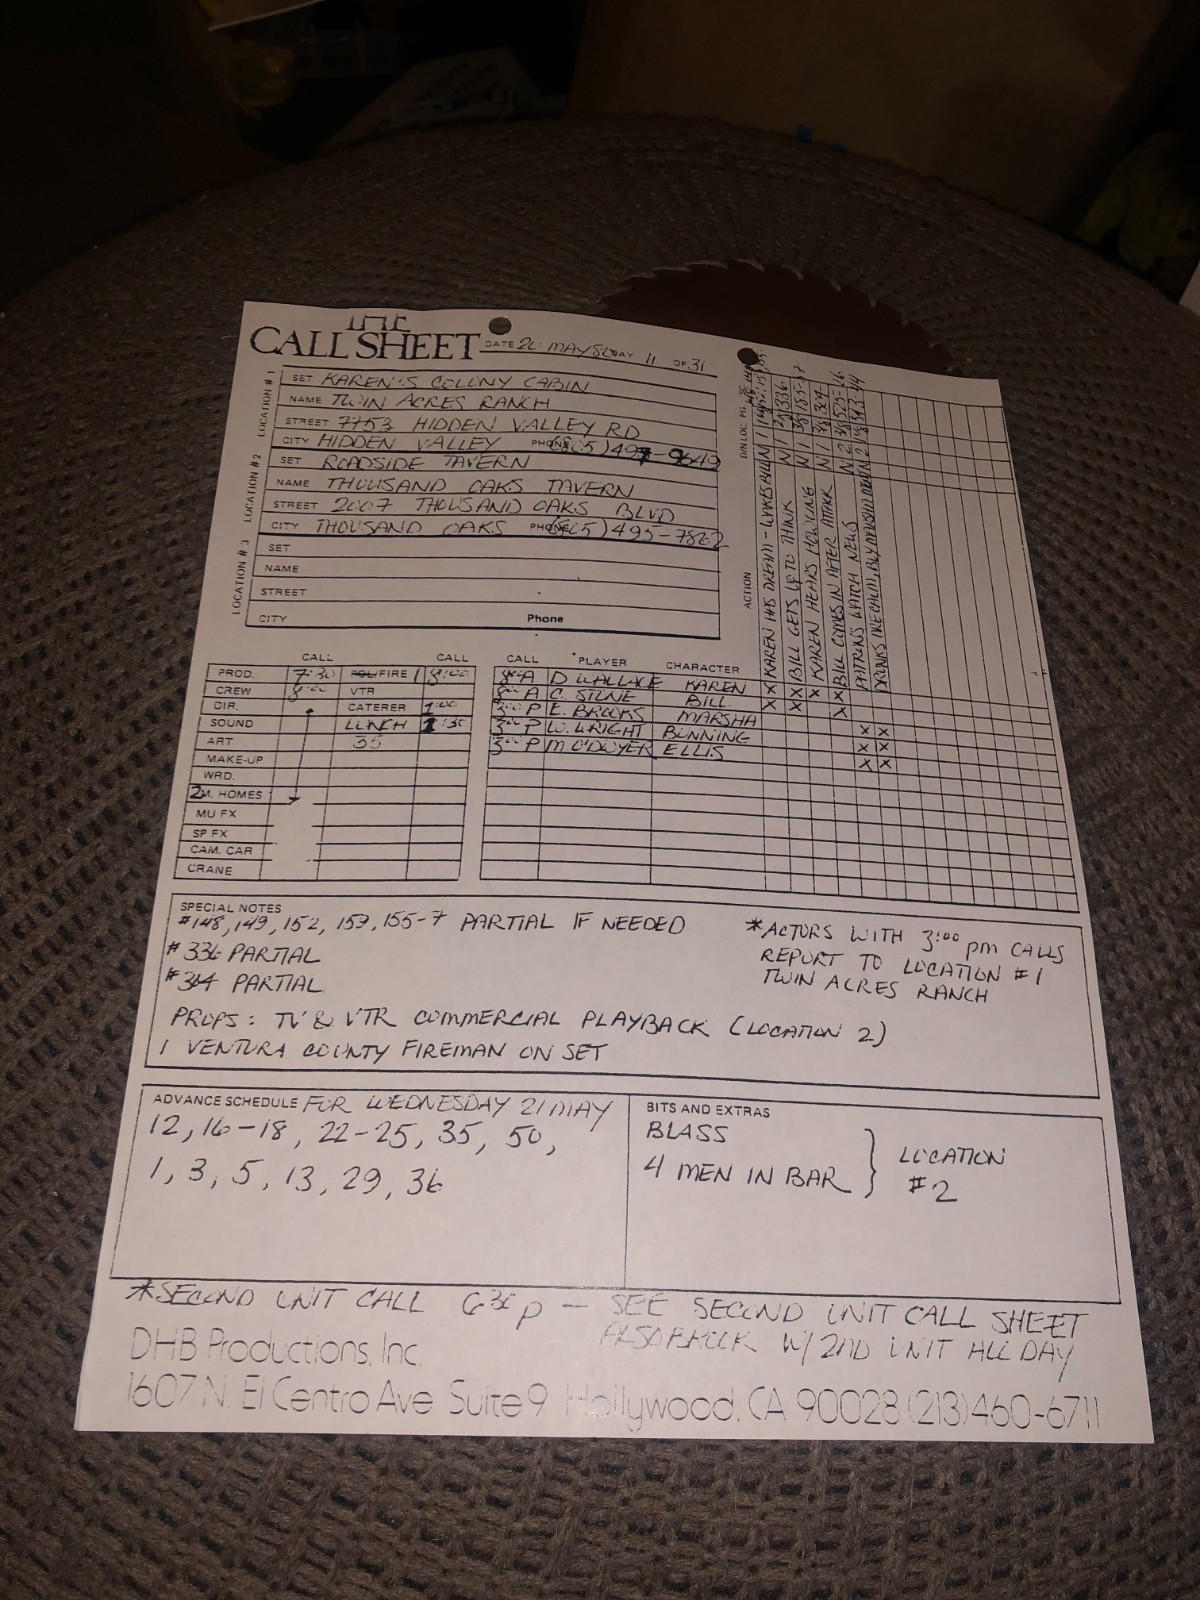 THE
CALL SHEET DATE 20 MAY 80 DAY 11 OF 31
LOCATION # 1
SET KAREN'S COLONY CABIN
NAME TWIN ACRES RANCH
STREET 7753 HIDDEN VALLEY RD
CITY HIDDEN VALLEY PHONE (805) 497-9649
LOCATION #2
SET ROADSIDE TAVERN
NAME THOUSAND OAKS TAVERN
STREET 2007 THOUSAND OAKS BLVD
CITY THOUSAND OAKS PHONE (805) 495-7822
LOCATION # 3
SET
NAME
STREET
CITY Phone
D/N LOC PG
ACTION
KAREN HAS DREAM - WAKES BILL N 1
BILL GETS UP TO THINK N 1 336
KAREN HEARS HOWLING N 1
BILL COMES IN AFTER ATTACK N 1
PATRONS WATCH NEWS N 2
DRINKS N 2
CALL CALL
PROD. 7:30 FIRE 1 8:00
CREW 8:00 VTR
DIR. CATERER 1:00
SOUND LUNCH 1:30
ART 35
MAKE-UP
WRD.
2 M. HOMES
MU FX
SP FX
CAM. CAR
CRANE
CALL PLAYER CHARACTER
8:00 A D WALLACE KAREN X X X
8:00 A C. STONE BILL X X X
3:00 P E. BROOKS MARSHA X
3:00 P W. WRIGHT BUNNING X X
3:00 P M O'DWYER ELLIS X X
X X
SPECIAL NOTES
#148, 149, 152, 153, 155-7 PARTIAL IF NEEDED
#336 PARTIAL
#304 PARTIAL
PROPS: TV & VTR COMMERCIAL PLAYBACK (LOCATION 2)
1 VENTURA COUNTY FIREMAN ON SET
*ACTORS WITH 3:00 pm CALLS
REPORT TO LOCATION #1
TWIN ACRES RANCH
ADVANCE SCHEDULE FOR WEDNESDAY 21 MAY
12, 16-18, 22-25, 35, 50,
1, 3, 5, 13, 29, 36
BITS AND EXTRAS
BLASS
4 MEN IN BAR
LOCATION
#2
*SECOND UNIT CALL 6:30 p — SEE SECOND UNIT CALL SHEET
ALSO W/ 2ND UNIT ALL DAY
DHB Productions, Inc.
1607 N. El Centro Ave Suite 9 Hollywood, CA 90028 (213) 460-6711